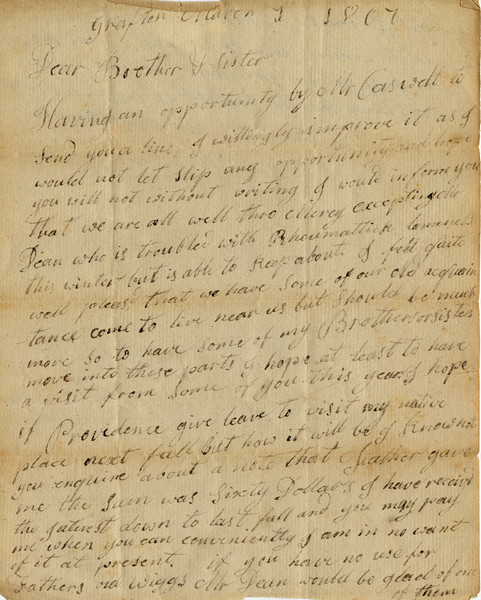 Grafton March 1 1807
Dear Brother & Sister
Having an opportunity by Mr Caswell to
send you a line I willingly improve it as I
would not let slip any opportunity and hope
you will not without writing I would inform you
that we are all well thro Mercy excepting Mr
Dean who is troubled with Rheumattick lameness
this winter but is able to keep about I feel quite
well pleasd that we have some of our old acquain
tance come to live near us but should be much
more so to have some of my Brothers or sisters
move into these parts I hope at least to have
a visit from some of you this year I hope
if Providence give leave to visit my native
place next fall but how it will be I know not
you enquire about a note that Father gave
me the sum was Sixty Dollars I have receivd
the Intrest down to last fall and you may pay
me when you can conveniently I am in no want
of it at present. if you have no use for
Fathers old Wiggs Mr Dean would be glad of one
of them